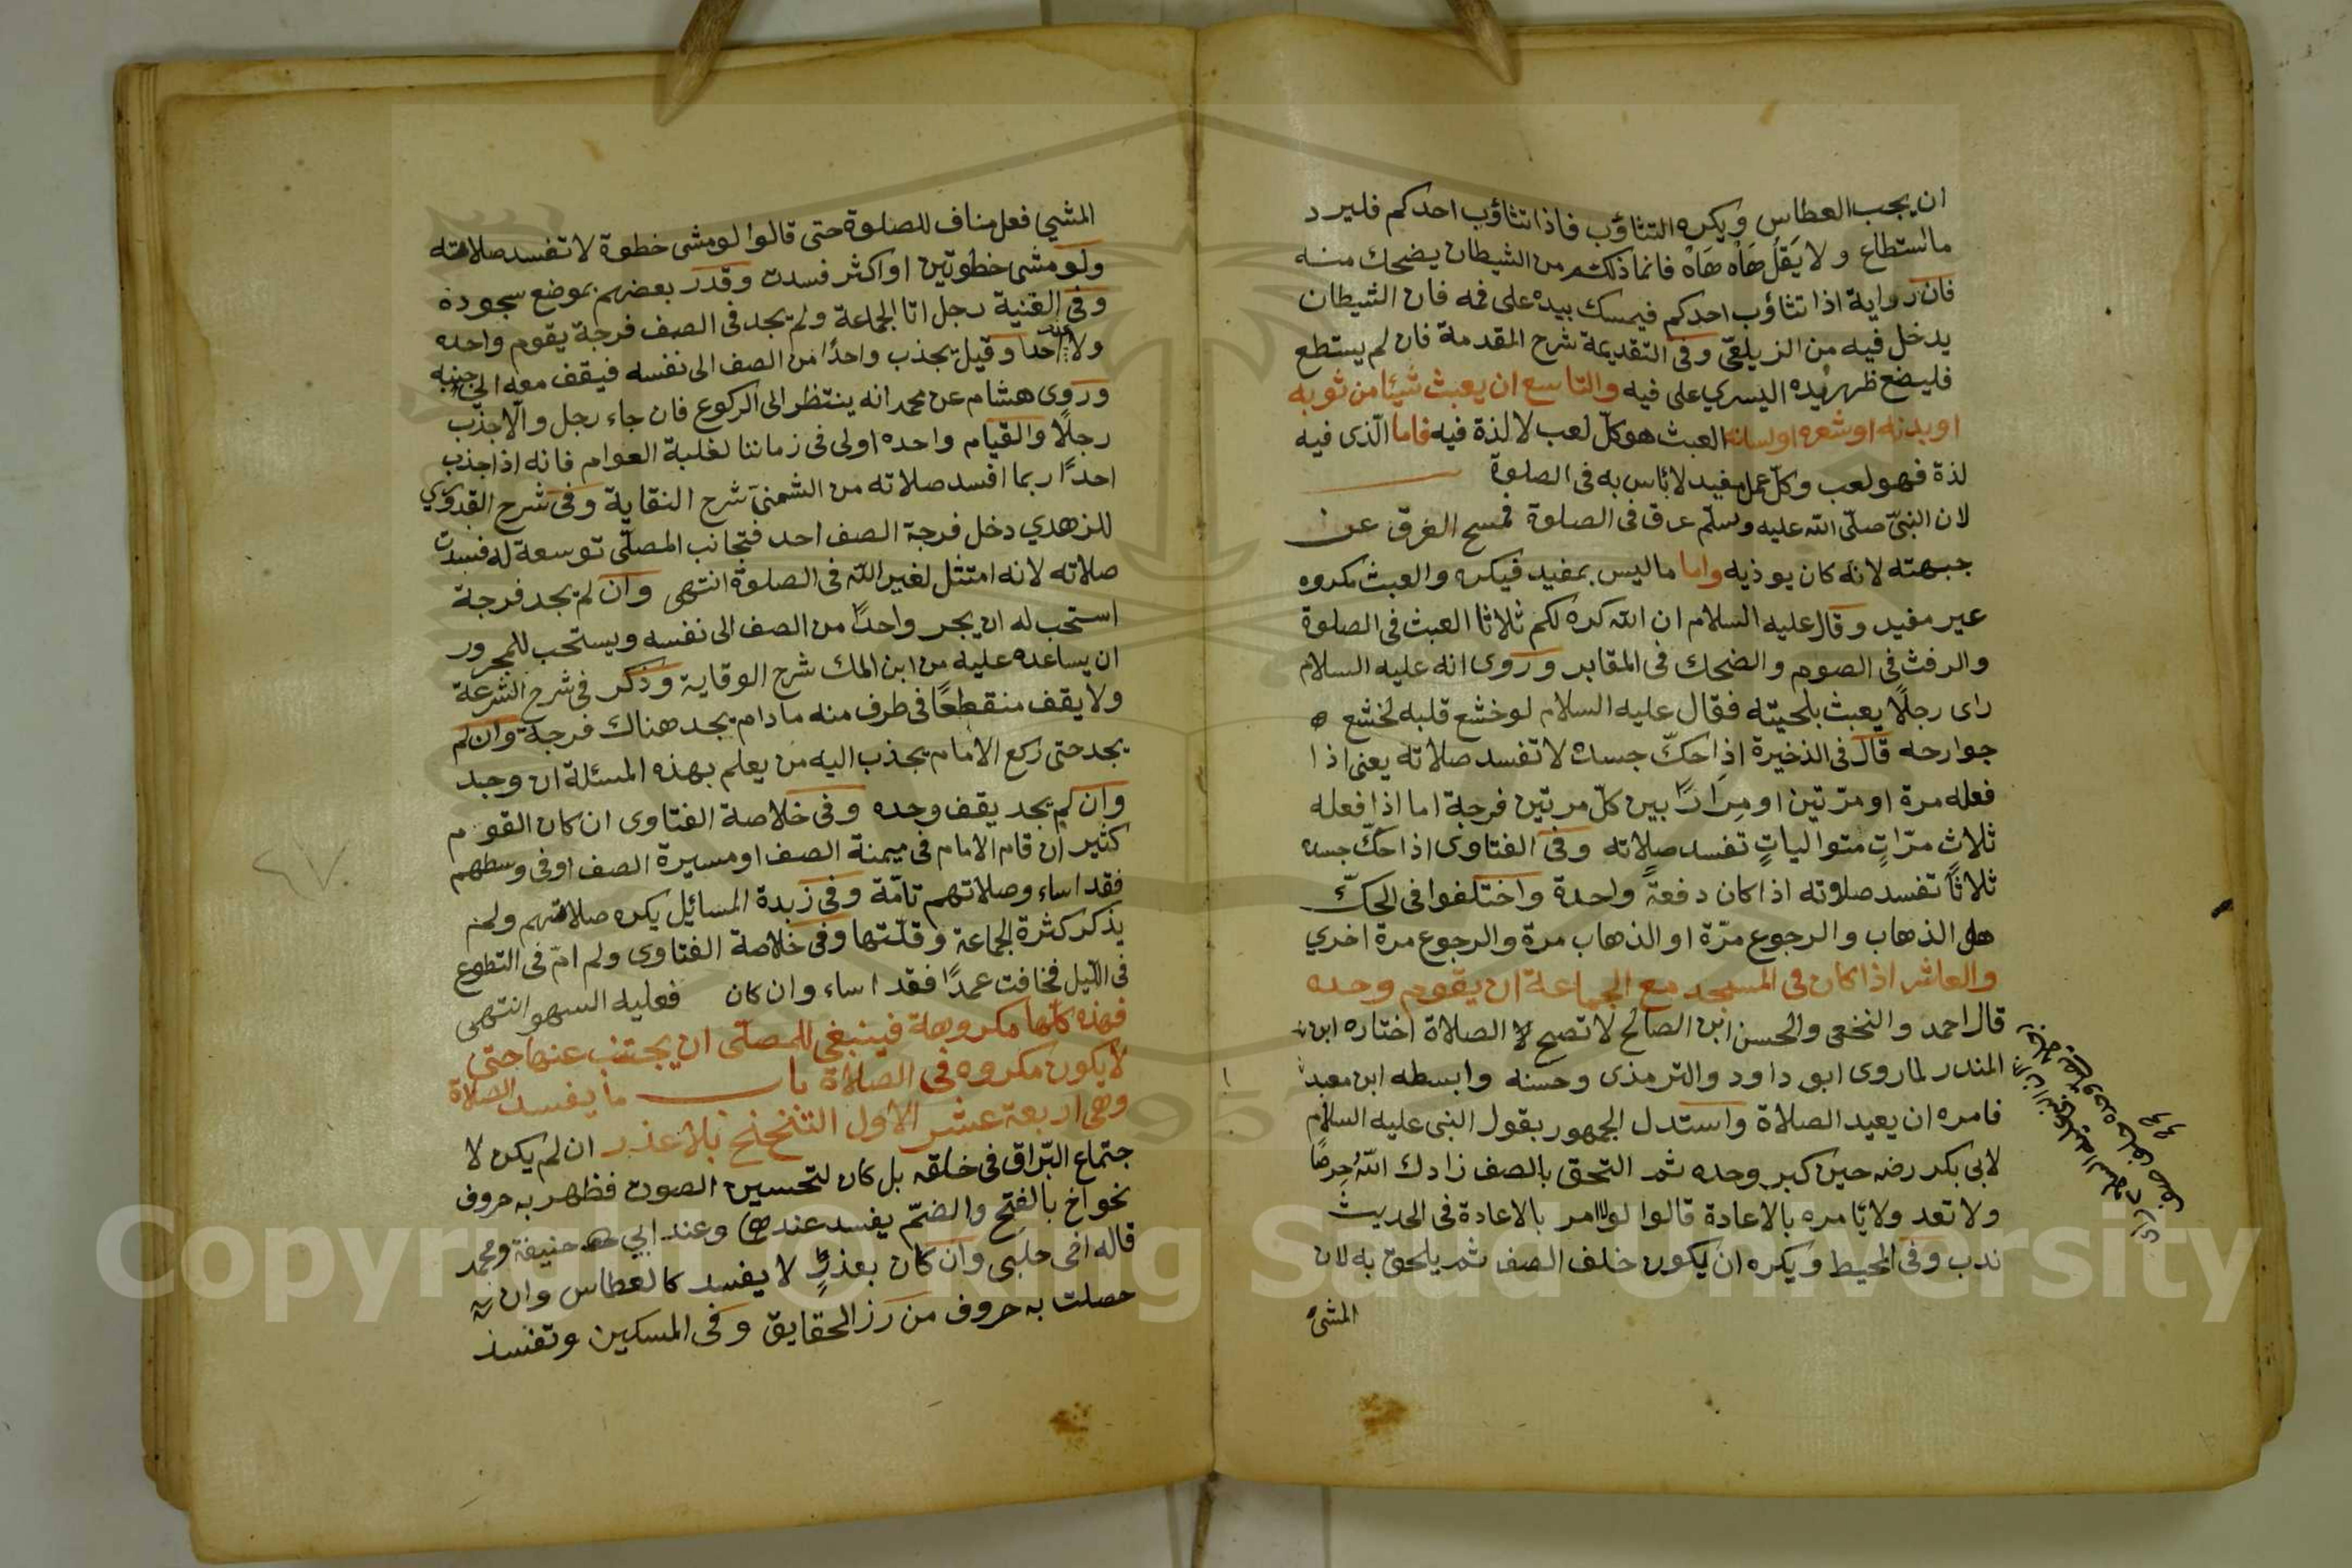 ان يحب العطاس ويكره التثاؤب فاذا تثاؤب احدكم فليرد
ما استطاع ولا يَقُل هَاه هَاه فانما ذلكم من الشيطان يضحك منه
فان رواية اذا تثاؤب احدكم فيمسك بيده على فمه فان الشيطان
يدخل فيه من الزيلعي وفى التقديمة شرح المقدمة فان لم يستطع
فليضع ظهر يده اليسرى على فيه والتاسع ان يعبث شيئا من ثوبه
او بدنه او شعره او لسانه العبث هو كلّ لعب لا لذة فيه فاما الّذى فيه
لذة فهو لعب وكلّ عمل مفيد لا بأس به فى الصلوة
لان النبىّ صلّى الله عليه وسلّم عرق فى الصلوة فمسح العرق عن
جبهته لانه كان يوذيه واما ما ليس بمفيد فيكره والعبث مكروه
عير مفيد وقال عليه السلام ان الله كره لكم ثلاثا العبث فى الصلوة
والرفث فى الصوم والضحك فى المقابر وروى انه عليه السلام
راى رجلًا يعبث بلحيته فقال عليه السلام لو خشع قلبه لخشع
جوارحه قال فى الذخيرة اذا حكّ جسده لا تفسد صلاته يعنى اذا
فعله مرة او مرّتين او مِرَارًا بين كلّ مرتين فرجة اما اذا فعله
ثلاث مرّاتٍ متوالياتٍ تفسد صلاته وفى الفتاوى اذا حكّ جسده
ثلاثًا تفسد صلوته اذا كان دفعةً واحدة واختلفوا فى الحكّ
هل الذهاب والرجوع مرّة او الذهاب مرة والرجوع مرة اخرى
والعاشر اذا كان فى المسجد مع الجماعة ان يقوم وحده
قال احمد والنخعى والحسن ابن الصالح لا تصح الصلاة اختاره ابن
المنذر لما روى ابو داود والترمذى وحسنه وابسطه ابن معبد
فامره ان يعيد الصلاة واستدل الجمهور بقول النبى عليه السلام
لابى بكر رضه حين كبر وحده ثم التحق بالصف زادك اللّهُ حِرصًا
ولا تعد ولا يأمره بالاعادة قالوا لو امر بالاعادة فى الحديث
ندب وفى المحيط ويكره ان يكون خلف الصف ثم يلحق به لان
المشى
المشي فعل مناف للصلوة حتى قالوا لو مشى خطوة لا تفسد صلاته
ولو مشى خطوتين او اكثر فسدت وقدّر بعضهم بموضع سجوده
وفى القنية رجل اتا الجماعة ولم يجد فى الصف فرجة يقوم واحده
ولا احدا وقيل يجذب واحدًا من الصف الى نفسه فيقف معه الى جنبه
وروى هشام عن محمد انه ينتظر الى الركوع فان جاء رجل والّا جذب
رجلًا والقيام واحده اولى فى زماننا لغلبة العوام فانه اذا جذب
احدًا ربما افسد صلاته من الشمنى شرح النقاية وفى شرح القدورى
للزهدي دخل فرجة الصف احد فتجانب المصلّى توسعة له فسدت
صلاته لانه امتثل لغير الله فى الصلوة انتهى وان لم يجد فرجة
استحب له ان يجر واحدًا من الصف الى نفسه ويستحب للمجرور
ان يساعده عليه من ابن الملك شرح الوقاية وذكر فى شرح الشرعة
ولا يقف منقطعًا فى طرف منه ما دام يجد هناك فرجة وان لم
يجد حتى ركع الامام يجذب اليه من يعلم بهذه المسئلة ان وجد
وان لم يجد يقف وحده وفى خلاصة الفتاوى ان كان القوم
كثير ان قام الامام فى ميمنة الصف او مسيرة الصف او فى وسطهم
فقد اساء وصلاتهم تامّة وفى زبدة المسائل يكره صلاتهم ولم
يذكر كثرة الجماعة وقلّتها وفى خلاصة الفتاوى ولم امّ فى التطوع
فى الليل فخافت عمدًا فقد اساء وان كان فعليه السهو انتهى
فهذه كلّها مكروهة فينبغى للمصلّى ان يجتنب عنها حتى
لا يكون مكروه فى الصلاة باب ما يفسد الصلاة
وهى اربعة عشر الاول التنحنح بلا عذر ان لم يكن لا
جتماع البزاق فى خلقه بل كان لتحسين الصوت فظهر به حروف
نحو اخ بالفتح والضمّ يفسد عند وعند ابي حنيفة ومحمد
قاله اخى حلبى وان كان بعذرٍ لا يفسد كالعطاس وان
حصلت به حروف من رز الحقايق وفى المسكين وتفسد
٤٧
Copyright © King Saud University